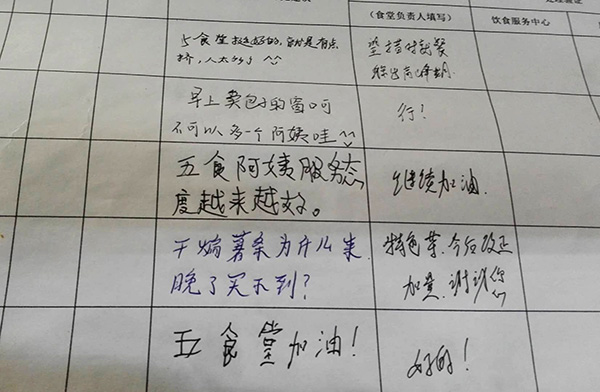 (食堂负责人填写)
饮食服务中心
5食堂挺好的,就是有点
挤,人太多了 ^^
坚持错时就餐
高峰期.
早上卖包子的窗口可
不可以多一个阿姨哇^^
行!
五食阿姨服务态
度越来越好。
继续加油.
干煸薯条为什么来
晚了买不到?
特色菜.今后改正
加量.谢谢您
五食堂加油!
好的!